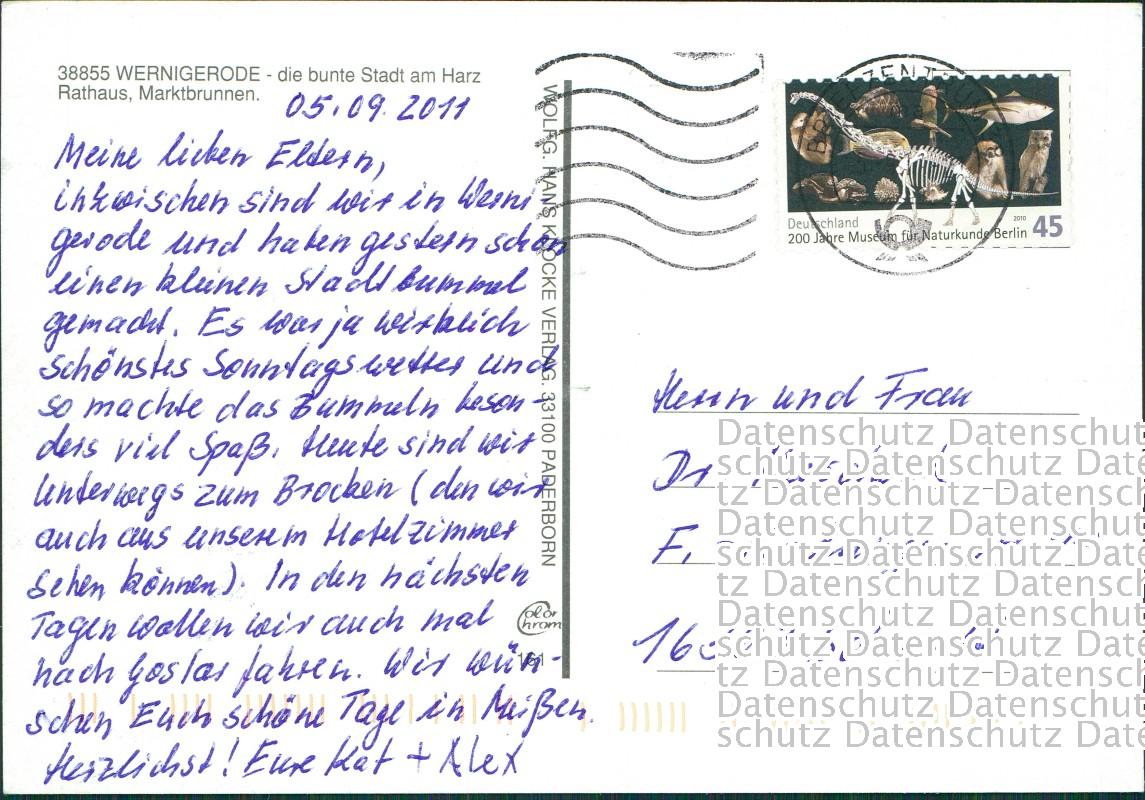 38855 WERNIGERODE - die bunte Stadt am Harz
Rathaus, Marktbrunnen.
05.09.2011
Meine lieben Eltern,
inzwischen sind wir in Werni
gerode und haben gestern schon
einen kleinen Stadtbummel
gemacht. Es war ja wirklich
schönstes Sonntagswetter und
so machte das Bummeln beson-
ders viel Spaß. Heute sind wir
unterwegs zum Brocken (den wir
auch aus unserem Hotelzimmer
sehen können). In den nächsten
Tagen wollen wir auch mal
nach Goslar fahren. Wir wün-
schen Euch schöne Tage in Meißen.
Herzlichst! Eure Kat + Alex
WOLFG. HANS KLOCKE VERLAG. 33100 PADERBORN
Color
chrom
BRIEFZENTRUM
Deutschland
2010
45
200 Jahre Museum für Naturkunde Berlin
Herrn und Frau
Dr
F.
16
Datenschutz Datenschut
schutz Datenschutz Date
tz Datenschutz Datensc
Datenschutz Datenschut
schutz Datenschutz Date
tz Datenschutz Datensc
Datenschutz Datenschut
schutz Datenschutz Date
tz Datenschutz Datensc
Datenschutz Datenschut
schutz Datenschutz Date